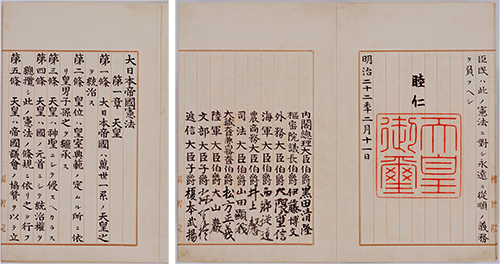 臣民ハ此ノ憲法ニ對シ永遠ニ從順ノ義務
ヲ負フヘシ
睦仁
天皇
御璽
明治二十二年二月十一日
内閣總理大臣伯爵黒田清隆
樞密院議長伯爵伊藤博文
外務大臣伯爵大隈重信
海軍大臣伯爵西郷從道
農商務大臣伯爵井上馨
司法大臣伯爵山田顯義
大藏大臣兼内務大臣伯爵松方正義
陸軍大臣伯爵大山巖
文部大臣子爵森有禮
遞信大臣子爵榎本武揚
大日本帝國憲法
第一章 天皇
第一條 大日本帝國ハ萬世一系ノ天皇之
ヲ統治ス
第二條 皇位ハ皇室典範ノ定ムル所ニ依
リ皇男子孫之ヲ繼承ス
第三條 天皇ハ神聖ニシテ侵スヘカラス
第四條 天皇ハ國ノ元首ニシテ統治權ヲ
總攬シ此ノ憲法ノ條規ニ依リ之ヲ行フ
第五條 天皇ハ帝國議會ノ協賛ヲ以テ立